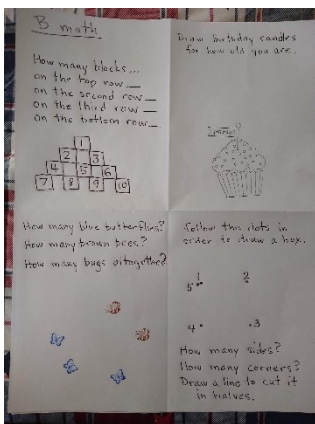 B math
How many blocks...
on the top row__
on the second row__
on the third row__
on the bottom row__
1
2 3
4 5 6
7 8 9 10
Draw birthday candles
for how old you are.
How many blue butterflies?
How many brown bees?
How many bugs altogether?
Follow the dots in
order to draw a box.
1 2
5
4 3
How many sides?
How many corners?
Draw a line to cut it
in halves.